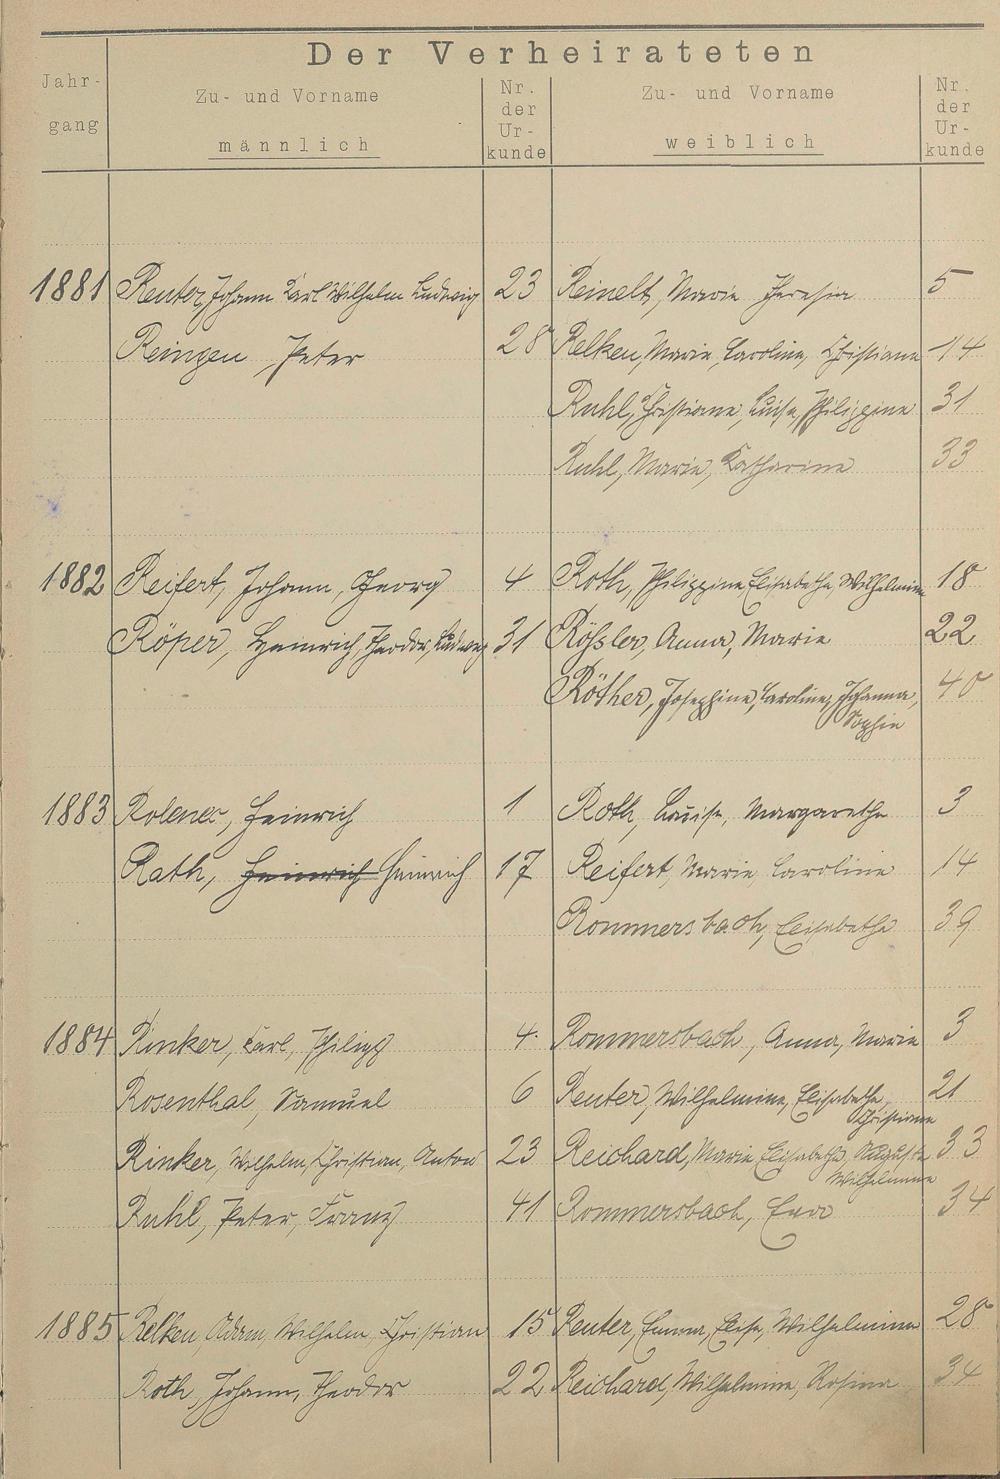 Der Verheirateten
Jahr-
gang
Zu- und Vorname
männlich
Nr.
der
Ur-
kunde
Zu- und Vorname
weiblich
Nr.
der
Ur-
kunde
1881 Reuter, Johann Karl Wilhelm Ludwig 23 Reinelt, Marie Theresia 5
Reingen, Peter 28 Relken, Marie, Caroline, Christiane 14
Ruhl, Christiane, Luise, Philippine 31
Ruhl, Marie, Katharine 33
1882 Reifert, Johann, Georg 4 Roth, Philippine Elisabethe, Wilhelmine 18
Röper, Heinrich, Theodor, Ludwig 31 Rößler, Anna, Marie 22
Röther, Josephine, Caroline, Johanna, 40
Sophie
1883 Rolenec, Heinrich 1 Roth, Louise, Margarethe 3
Rath, Heinrich Heinrich 17 Reifert, Marie, Caroline 14
Rommersbach, Elisabethe 39
1884 Rinker, Karl, Philipp 4. Rommersbach, Anna, Marie 3
Rosenthal, Samuel 6 Reuter, Wilhelmine, Elisabethe, 21
Christiane
Rinker, Wilhelm, Christian, Anton 23 Reichard, Marie Elisabethe, Auguste 33
Wilhelmine
Ruhl, Peter, Franz 41 Rommersbach, Eva 34
1885 Relken, Adam, Wilhelm, Christian 15 Reuter, Emma, Elise, Wilhelmine 28
Roth, Johann, Theodor 22 Reichard, Wilhelmine, Rosina 34